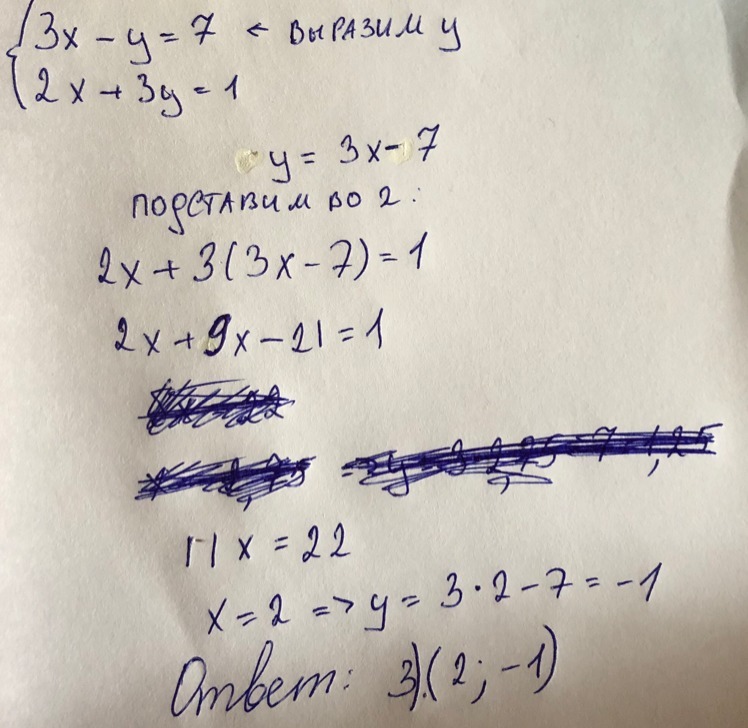 {3x - y = 7 ← ВЫРАЗИМ y
{2x + 3y = 1
y = 3x - 7
ПОДСТАВИМ ВО 2:
2x + 3(3x - 7) = 1
2x + 9x - 21 = 1
11x = 22
x = 2 => y = 3·2 - 7 = -1
Ответ: 3).(2; -1)